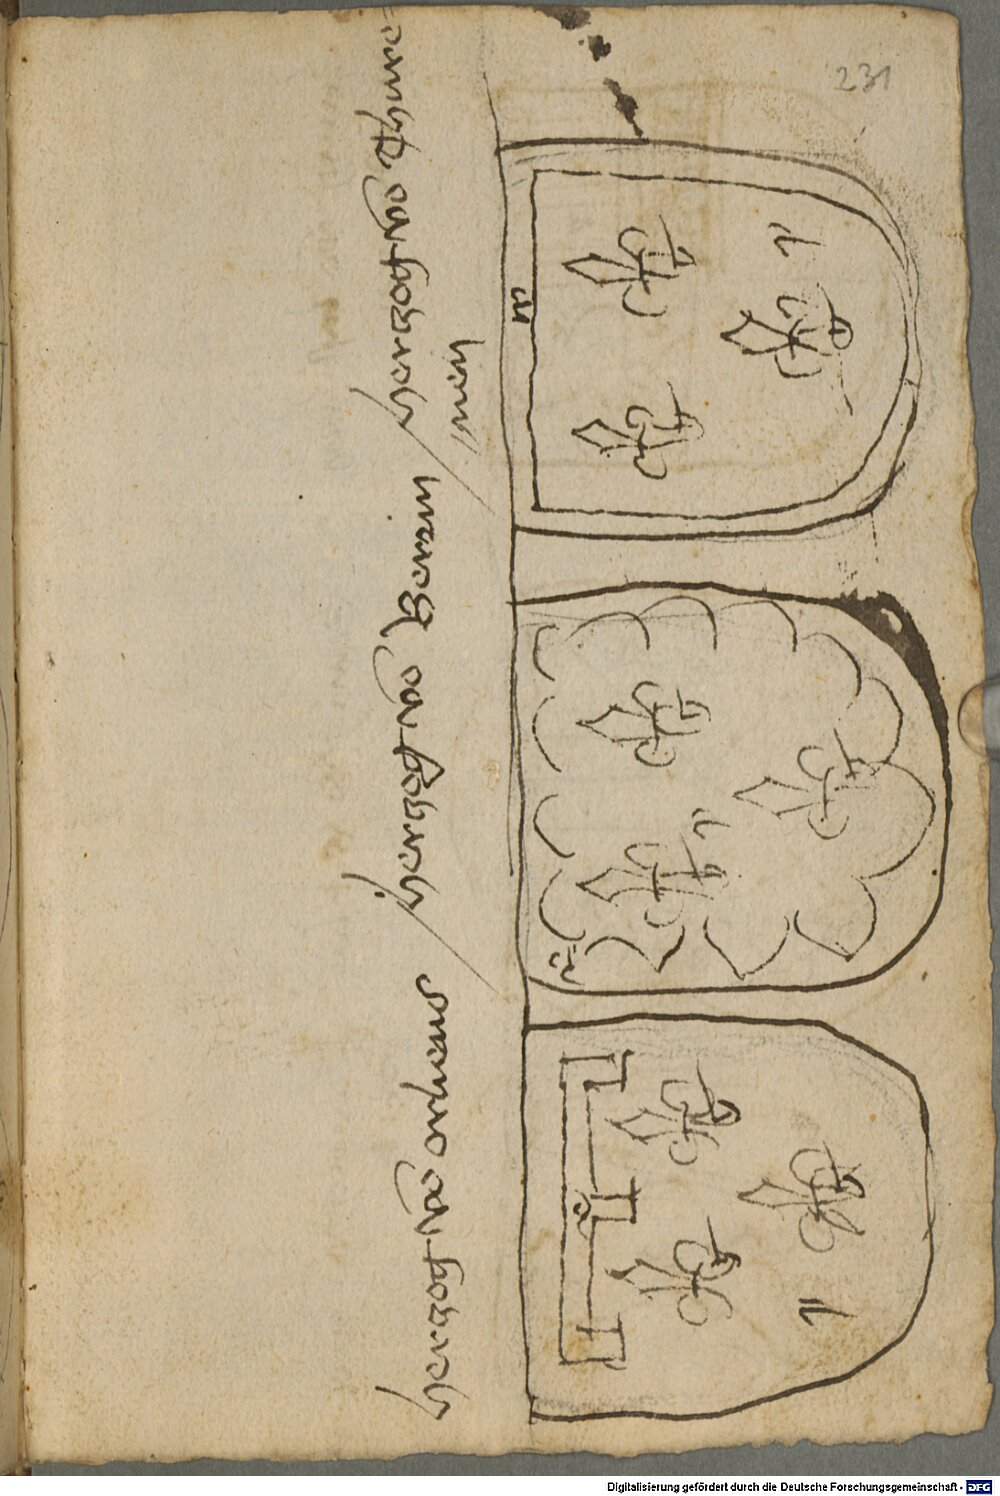 231
hertzog vō orliens
hertzog vō Berrin
hertzog vō thuro=
nien
w
w
w
Digitalisierung gefördert durch die Deutsche Forschungsgemeinschaft - DFG